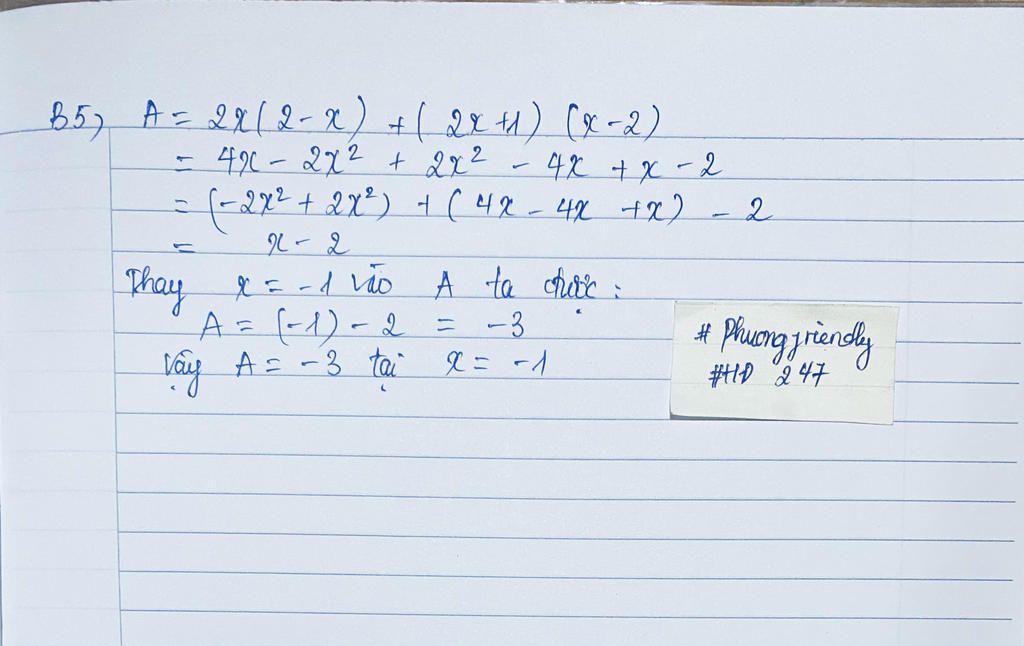 B5, A = 2x(2-x) + (2x+1) (x-2)
= 4x - 2x² + 2x² - 4x + x - 2
= (-2x² + 2x²) + (4x - 4x + x) - 2
= x - 2
Thay x = -1 vào A ta được :
A = (-1) - 2 = -3
Vậy A = -3 tại x = -1
# Phuongfriendly
#HD 247